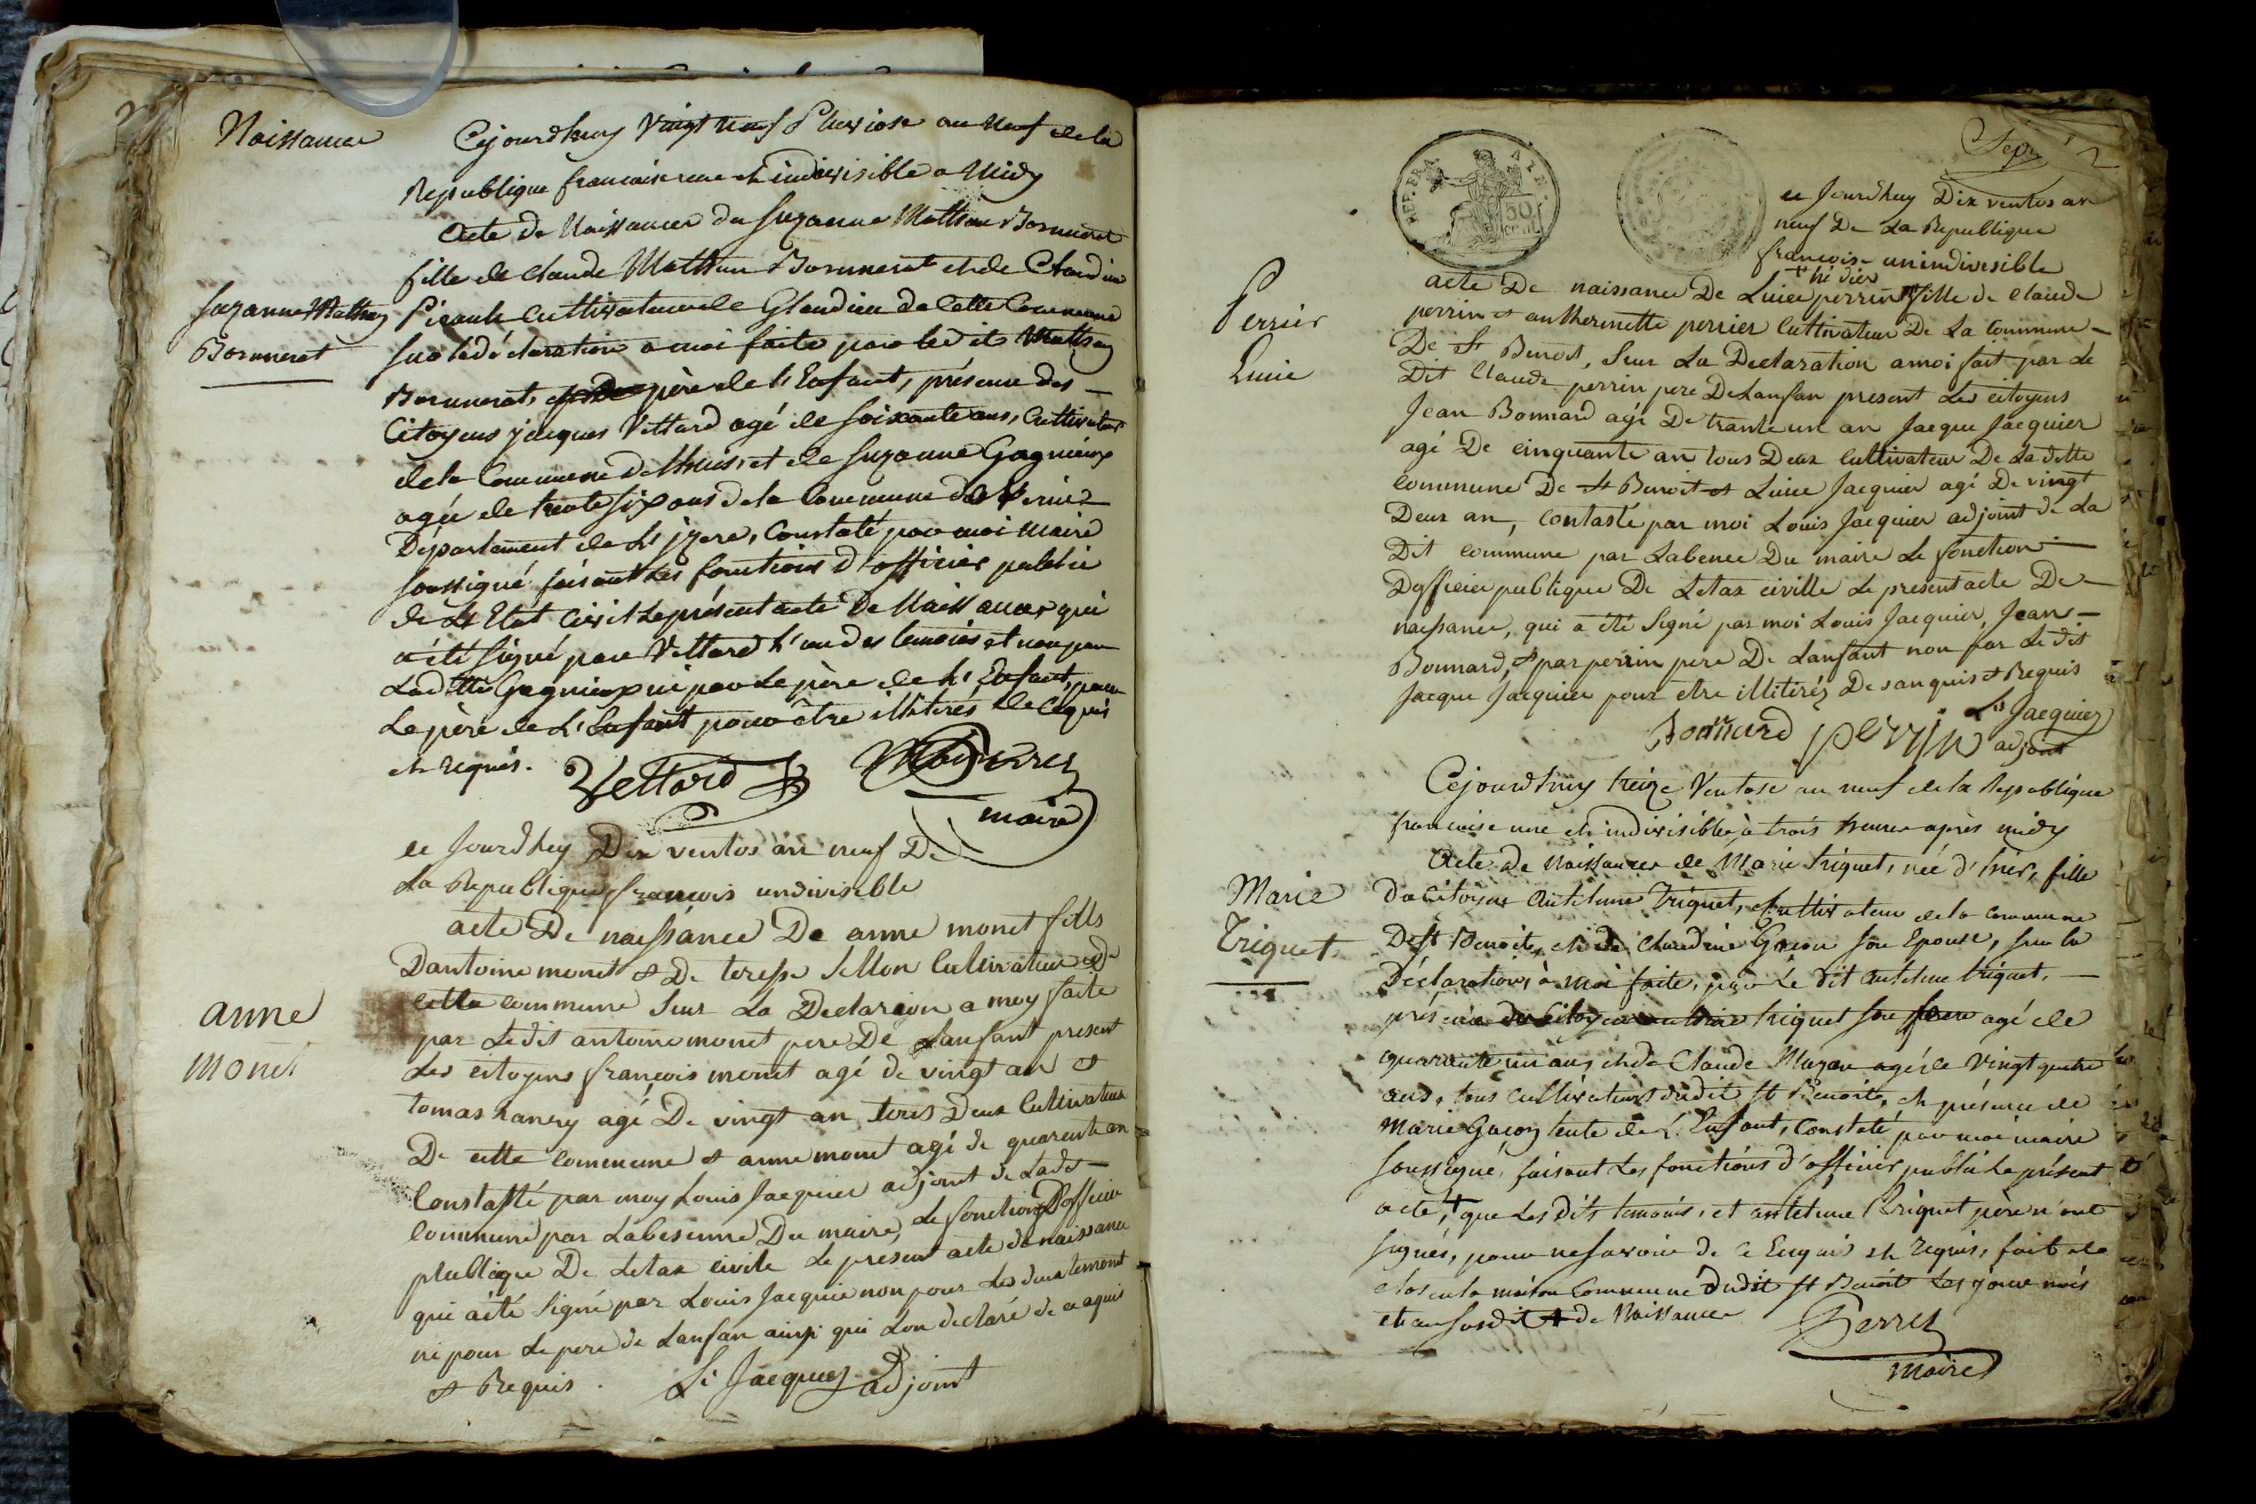 Naissance
Cejourdhuy Vingt neuf Pluviose an neuf de la
Republique francaise une et indivisible a Midy
Acte de Naissance de Suzanne Matthan Bornnerat
fille de Claude Matthan Bornnerat et de Claudine
Suzanne
Bornnerat
cultivateur de Glandieu de Cette Commune
Sur la déclaration a moi faite par ledit
Bornnerat, père de l'Enfant, présence des
Citoyens jacques Vettard agé de soixante ans, Cultivateur
de la Commune de et de Suzanne Gagnieux
agée de trente six ans de la Commune de
Département de L'jzere, Constaté par moi Maire
soussigné faisant les fonctions d'officier public
de L'Etat Civil le présent acte de Naissance qui
a été signé par Vettard l'un des temoins et non par
Laditte Gagnieux ni par Le père de L'Enfant, pour
Le père de L'Enfant pour être illiterés de Cequis
et requis.
Vettard
Perret
maire
ce Jourdhuy Dix ventos an neuf De
La Republique francois undivisible
acte De naissance De anne monet fills
Dantoine monet & De teresse sellon Cultivateur de
anne
monet
cette commune Sur La Declaraion a moy faite
par Ledit antoine monet pere De Lanfant present
Les citoyens francois monet agé de vingt an &
tomas agé De vingt an tous Deux Cultivateur
De cette commune & anne monet agé de quarente an
Constatté par moy Louis Jacquier adjoint de Ladt
commune par Labesenne Du maire, Le fonctions Dofficier
publique De Letaz civile Le present acte de naissance
qui a été signé par Louis Jacquie non pour Les deux temont
ni pour Le pere de Lanfan ainsi qui Lon declaré de ce aquis
& Requis.
Ls Jacquier adjoint
REP. FRA.
50
cent.
Sept
ce Jourdhuy Dix ventos an
neuf De La Republique
francoise unindivisible
+ hé dier
acte De naissance De Luice perrin fille de Claude
Perrier
Luice
perrin & anthermette perrier Cultivateur De La Commune
De St Benoit, Sur La Declaration amoi fait par Le
Dit Claude perrin pere DeLanfan present Les citoyens
Jean Bonnard agé De trante un an Jacque Jacquier
agé De cinquante an tous Deux Cultivateur De La ditte
commune De St Benoit & Luice Jacquier agé De vingt
Deux an, Contasté par moi Louis Jacquier adjoint de La
Dit commune par Labence Du maire Le fonction
Dofficier publique De Letaz civille Le present acte De
naissance, qui a été signé par moi Louis Jacquier, Jean
Bonnard, & par perrin pere De Lanfant non par Le dit
Jacque Jacquier pour etre illiteréz De sanquis & Requis
Ls Jacquier
adjont
Bonnard perrin
Cejourdhuy treize Ventose an neuf de la Republique
francaise une et indivisible, à trois heures après midy
Acte de Naissance de Marie triquet, née d'hier, fille
Marie
Triquet
de Citoyen Antelme Triquet, Cultivateur de la Commune
De St Benoit, et de Claudine Gacon son Epouse, sur la
Déclaration à moi faite, par Le dit antelme triquet.
présence du Citoyen triquet son frere agé de
quarante un ans, et de Claude agé de Vingt quatre
ans, tous Cultivateurs dudit St Benoit, et présence de
Marie Gacon tente de L'Enfant, Constaté par moi maire
soussigné, faisant les fonctions d'officier public Le présent
acte + que Les dits temoins, et antelme triquet père n'ont
signés, pour ne Savoir de ce Enquis et requis, fait et
clos en la maison Commune dudit St Benoit Les jour mois
et an susdit + de Naissance
Perret
Maire